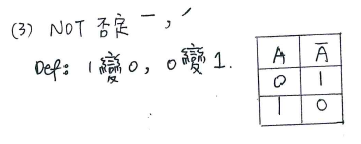 (3) NOT 否定 ¯ , ′
Def: 1變0, 0變1.
A Ā
0 1
1 0